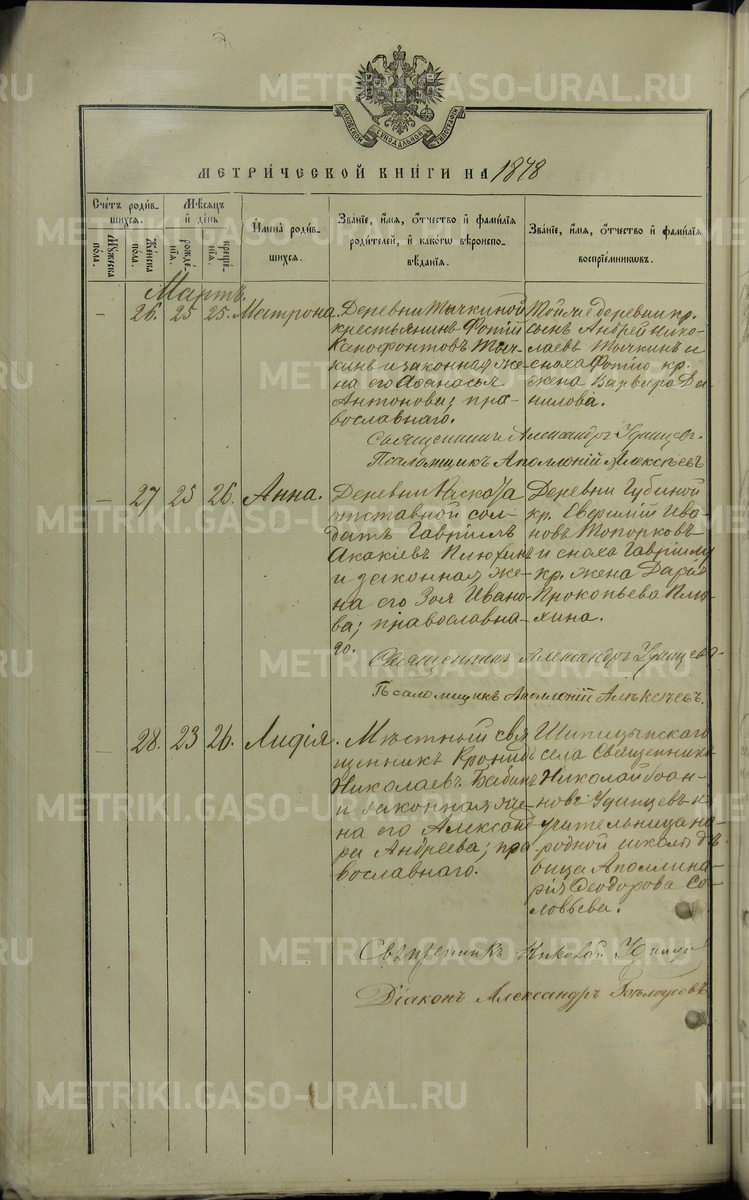 МОСКОВСКОЙ СѴНОДАЛЬНОЙ ТИПОГРАФІИ
МЕТРИ́ЧЕСКОЙ КНИ́ГИ НА 1878
Сче́тъ роди́в-
шихся.
Му́жеска по́ла.
Же́нска по́ла.
Мѣ́сяцъ
и҆ де́нь
рожде́нїѧ.
креще́нїѧ.
И҆мена̀ роди́в-
шихся.
Зва́нїе, и҆́мѧ, ѻ҆́тчество и҆ фами́лїѧ
роди́телей, и҆ како́гѡ вѣроиспо-
вѣ́данїѧ.
Зва́нїе, и҆́мѧ, ѻ҆́тчество и҆ фами́лїѧ
воспрїе́мниковъ.
Мартъ.
– 26. 25 25. Матрона.
Деревни Тычкиной
крестьянинъ Фотій
Ксенофонтовъ Тыч-
кинъ и законная же-
на его Афанасья
Антонова; пра-
вославнаго.
Тойже деревни кр.
сынъ Андрей Нико-
лаевъ Тычкинъ и
сноха Фотію кр.
жена Варвара Да-
нилова.
Священникъ Александръ Удинцев.
Псаломщикъ Аполлоній Алексѣевъ
– 27 25 26. Анна.
Деревни
отставной сол-
датъ Гавріилъ
Акакіевъ Плюхинъ
и законная же-
на его Зоя Ивано-
ва; православна-
го.
Деревни Губиной
кр. Евфимій Ива-
новъ Топорковъ
и сноха Гавріилу
кр. жена Дарія
Прокопьева Плю-
хина.
Священникъ Александръ Удинцевъ
Псаломщикъ Аполлоній Алексѣевъ.
– 28. 23 26. Лидія.
Мѣстный свя
щенникъ Кронидъ
Николаевъ Бабинъ
и законная же-
на его Александ
ра Андреева; пра
вославнаго.
Шипицынскаго
села Священникъ
Николай Іоан-
новъ Удинцевъ и
учительница на-
родной школы дѣ-
вица Аполлина-
рія Ѳеодорова Со-
ловьева.
Священникъ Николай
Діаконъ Александръ Бѣлоусовъ
METRIKI.GASO-URAL.RU